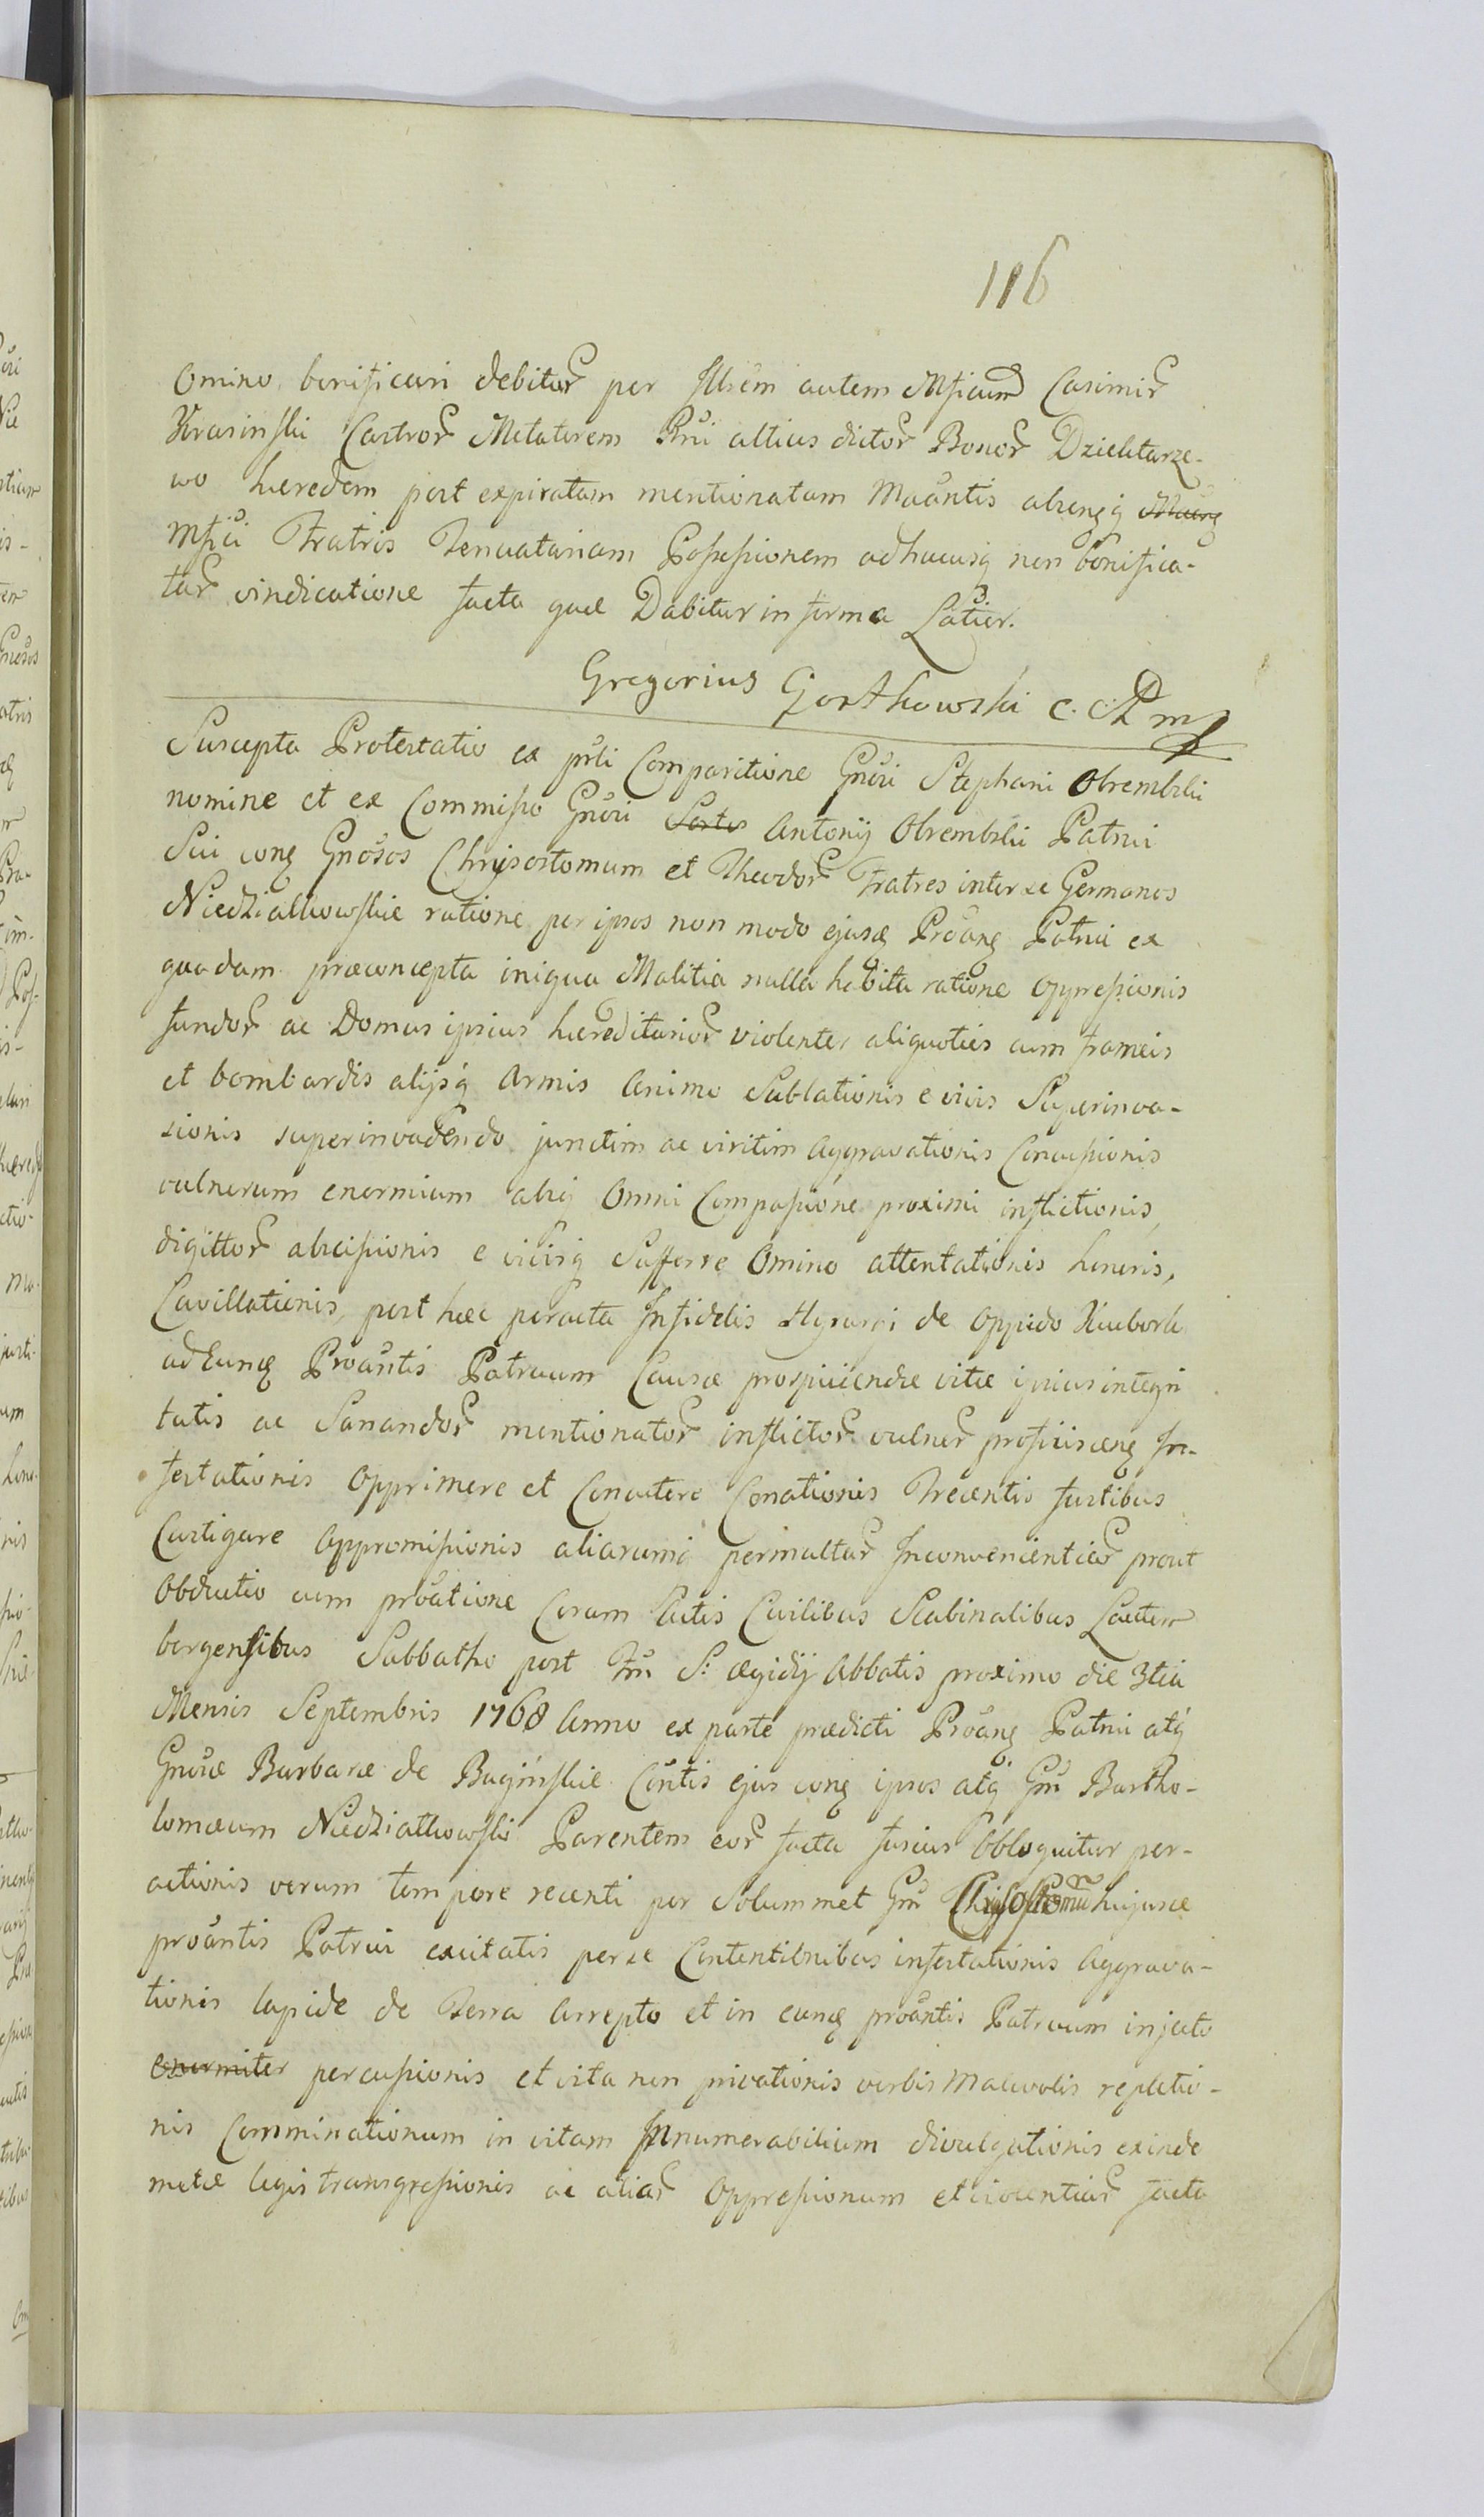 116
Omino bonificari debitar per Illrem autem Mficum Casimir
Krasinski Castror Metatorem Rni altius dictor Bonor Dziektarze-
wo hæredem post expiratam mentionatam Maantis absensq
Mfici Fratris Tenutariam Possessionem adhucusq non bonifica-
tar vindicatione facta quæ Dabitur in forma Latior.
Gregorius Gorthowski c. A P mp
Suscepta Protestatio ex prsti Comparitione Gnosi Stephani Obrembski
nomine et ex Commisso Gnosi Antonij Obrembski Patrui
Sui conq Gnosos Chrysostomum et Theodor Fratres inter se Germanos
Niedzialkowskie ratione per ipsos non modo ejusq Proanq Patrui ex
quadam præconcepta iniqua Malitia nulla habita ratione Oppressionis
fundor ac Domus ipsius hæreditarior violenter aliquoties cum frameis
et bombardis alijsq Armis Animo Sublationis e vivis Superinva-
sionis superinvadendo junctim ac viritim Aggravationis Concussionis
vulnerum enormium absq Omni Compassione proximi inflictionis,
digittor abscissionis e vivisq Sufferre Omino attentationis honoris,
Cavillationis, post hæc peracta Infidelis Hyrurgi de Oppido Kuchork
ad Eunq Proantis Patruum Causa prospiciendæ vitæ ipsius integri
tatis ac Sanandor mentionator inflictor vulner proficiscenq In-
festationis Opprimere et Concutere Conationis Trecentis fustibus
Castigare Appromissionis aliarumq permultar Inconvenientiar prout
Obductio cum proatione Coram Actis Civilibus Scabinalibus Lauter
bergensibus Sabbatho post Fm S: Ægidij Abbatis proximo die 3tia
Mensis Septembris 1768 Anno ex parte prædicti Proanq Patrui atq
Gnosæ Barbaræ de Baginskie Contis ejus conq ipsos atq Gm Bartho-
lomæum Niedzialkowski Parentem eor facta fusius Obloquitur per-
actionis verum tempore recenti per Solummet Gm Chrysostomum hujusce
proantis Patrui excitatis per se Contentionibus infestationis Aggrava-
tionis lapide de Terra Arrepto et in eunq proantis Patruum injecto
enormiter percussionis et vita non privationis verbis Malevolis repletio-
nis Comminationum in vitam Innumerabilium divulgationis exinde
metæ legis transgressionis ac aliar Oppressionum et violentiar facta